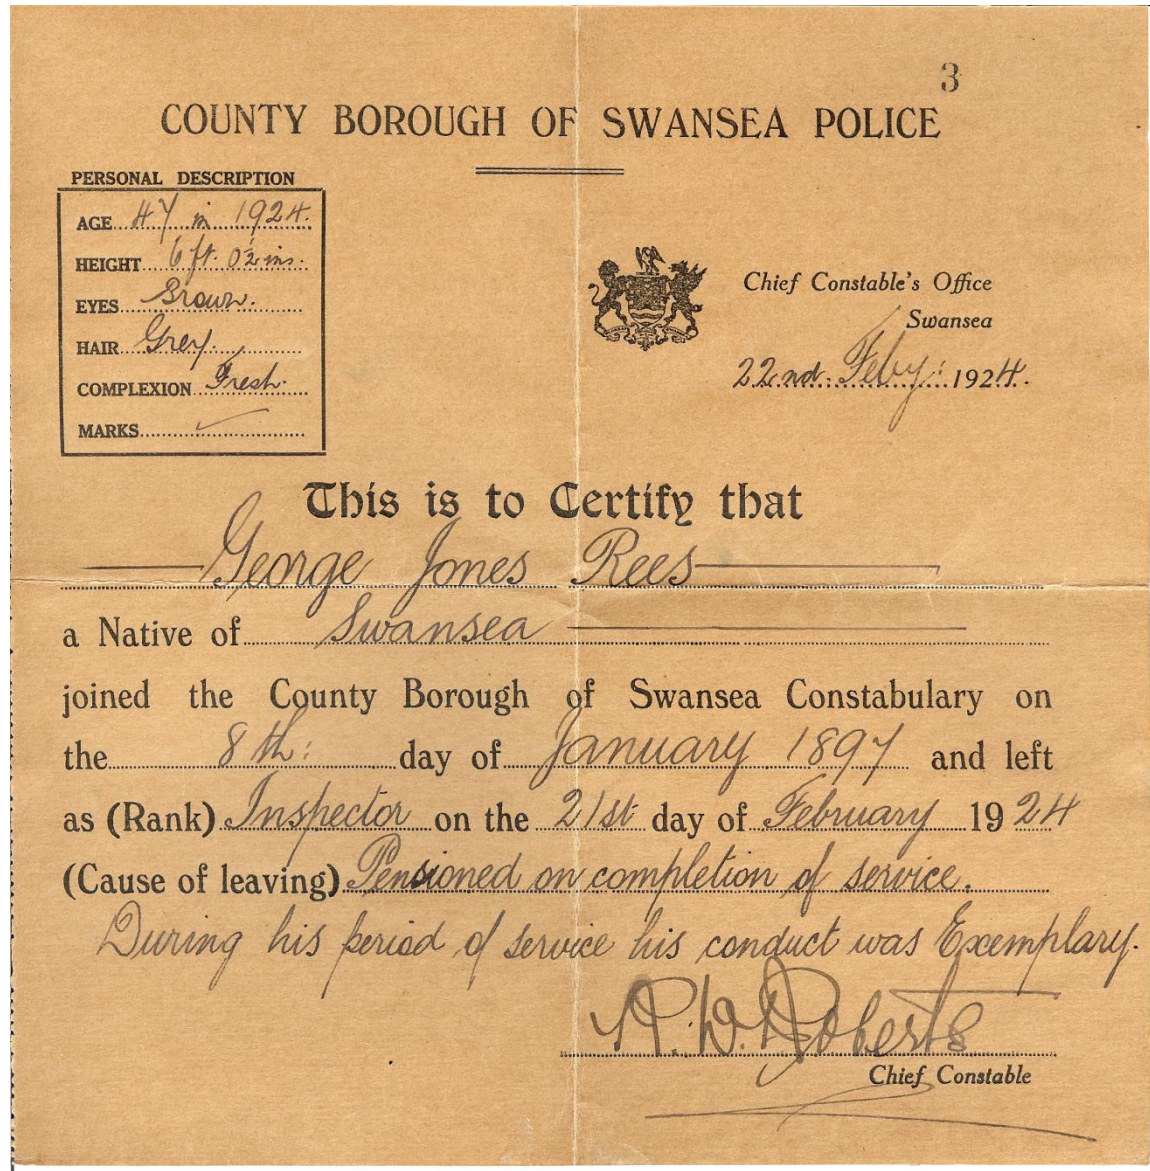 3
COUNTY BOROUGH OF SWANSEA POLICE
PERSONAL DESCRIPTION
AGE 47 in 1924.
HEIGHT 6 ft. 0½ ins.
EYES Brown.
HAIR Grey.
COMPLEXION Fresh.
MARKS
Chief Constable's Office
Swansea
22nd. Feby: 1924.
This is to Certify that
George Jones Rees
a Native of Swansea
joined the County Borough of Swansea Constabulary on
the 8th: day of January 1897 and left
as (Rank) Inspector on the 21st day of February 1924
(Cause of leaving) Pensioned on completion of service.
During his period of service his conduct was Exemplary.
R. D. Roberts
Chief Constable